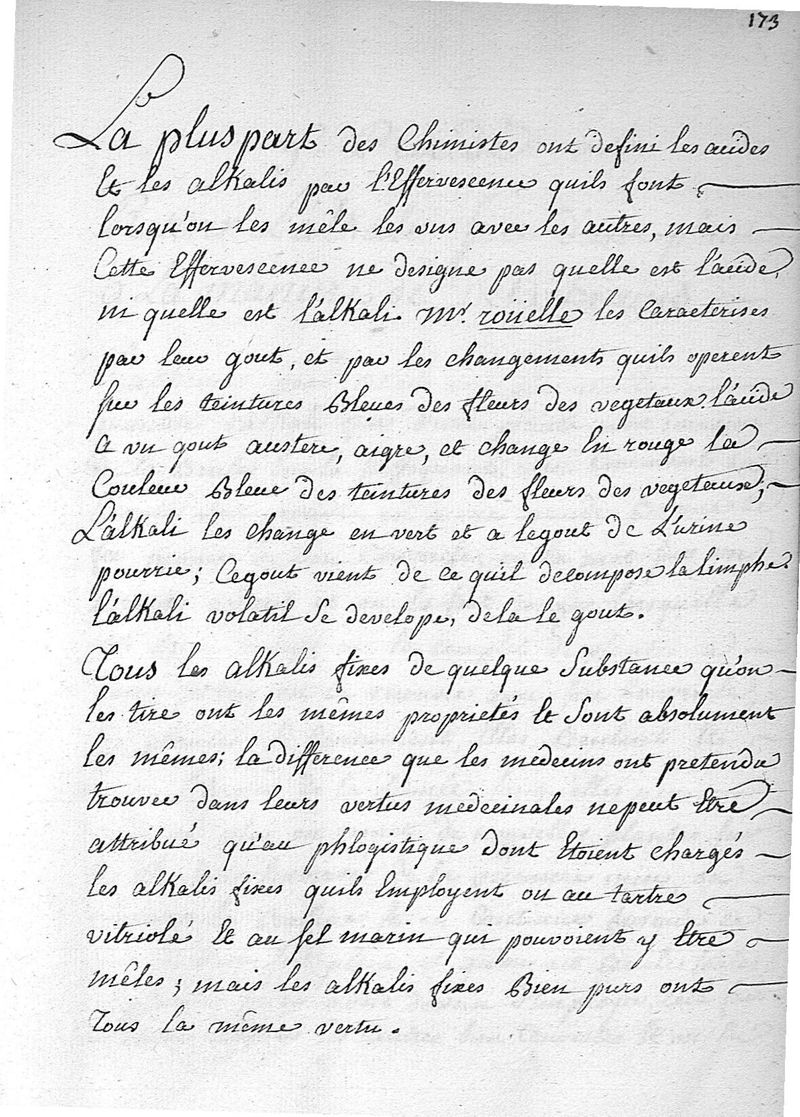 173
La pluspart des Chimistes ont defini les acides
Et les alkalis par l'Effervescence quils font
lorsqu'on les mêle les uns avec les autres, mais
Cette Effervescence ne designe pas quelle est l'acide,
ni quelle est l'alkali. Mr. roüelle les Caracterises
par leur gout, et par les changements quils operent
sur les teintures Bleues des fleurs des vegetaux. l'acide
a un gout austere, aigre, et change En rouge la
Couleur Bleue des teintures des fleurs des vegetaux;
L'alkali les change en vert et a legout de L'urine
pourrie; Cegout vient de ce quil decompose la limphe.
l'alkali volatil Se develope, dela le gout.
Tous les alkalis fixes de quelque Substance qu'on
les tire ont les mêmes proprietés Et Sont absolument
les mêmes; la difference que les medecins ont pretendu
trouver dans leurs vertus medecinales nepeut Etre
attribué qu'au phlogistique dont Etoient chargés
les alkalis fixes quils Employent ou au tartre
vitriolé Et au sel marin qui pouvoient y Etre
mêles; mais les alkalis fixes Bien purs ont
Tous la même vertu.